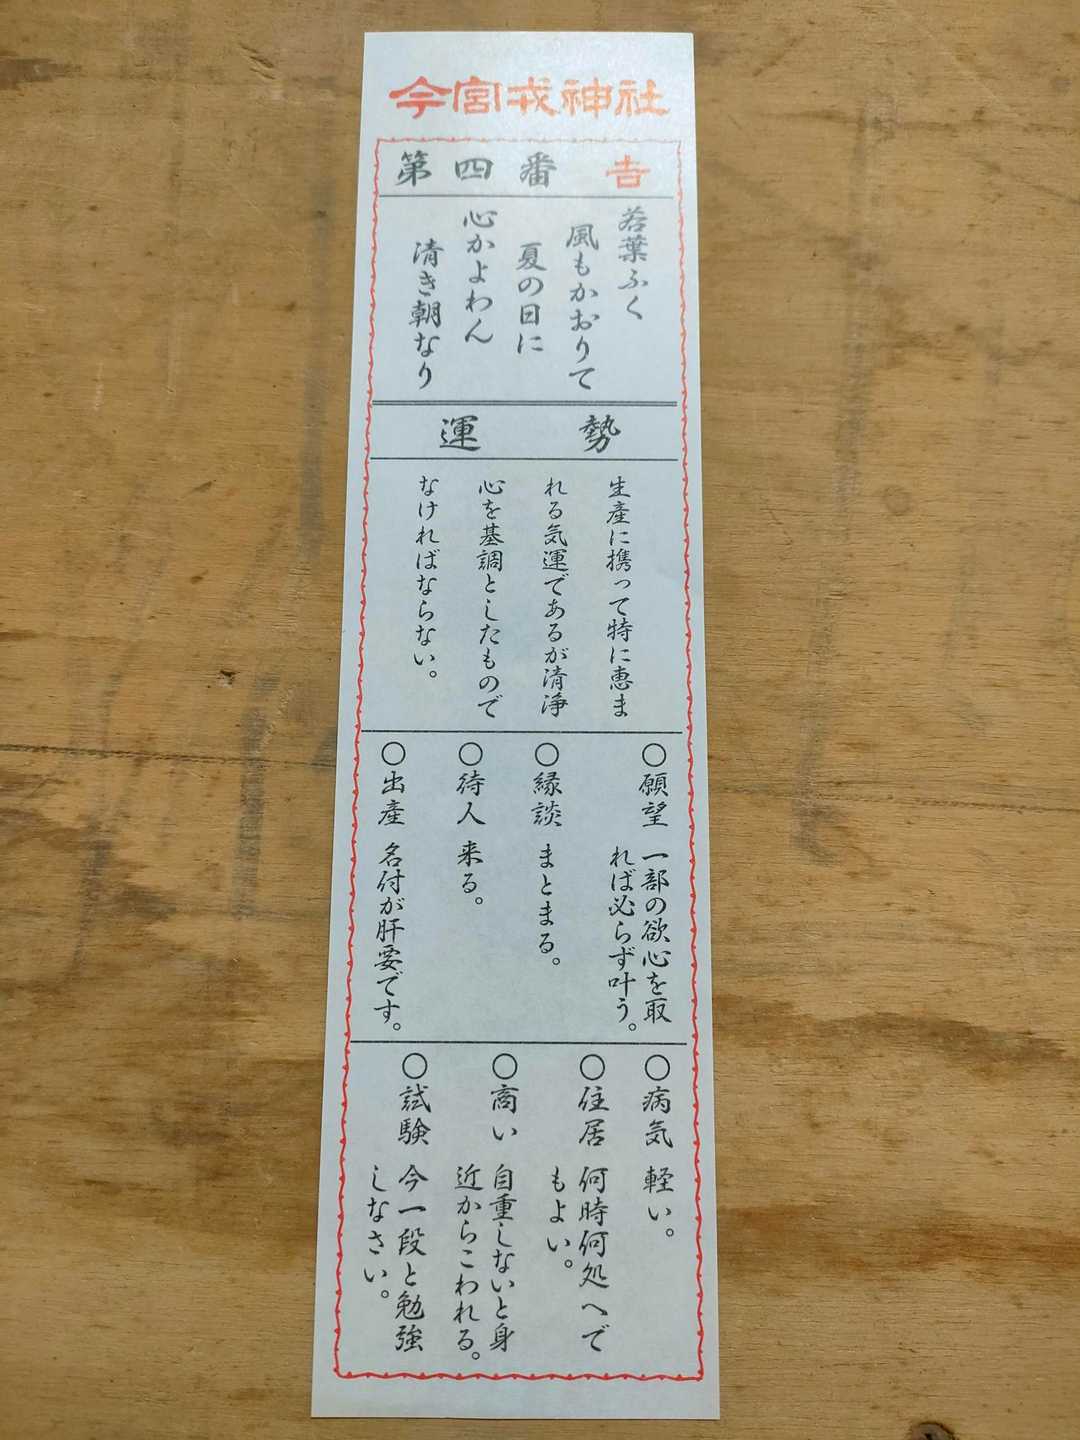 今宮戎神社
第四番 吉
若葉ふく
風もかおりて
夏の日に
心かよわん
清き朝なり
運勢
生産に携って特に恵ま
れる気運であるが清浄
心を基調としたもので
なければならない。
○願望 一部の欲心を取
れば必らず叶う。
○縁談 まとまる。
○待人 来る。
○出産 名付が肝要です。
○病気 軽い。
○住居 何時何処へで
もよい。
○商い 自重しないと身
近からこわれる。
○試験 今一段と勉強
しなさい。